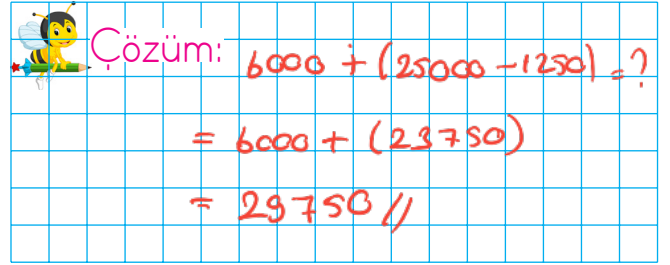 Çözüm: 6000 + (25000 - 1250) = ?
= 6000 + (23750)
= 29750 //